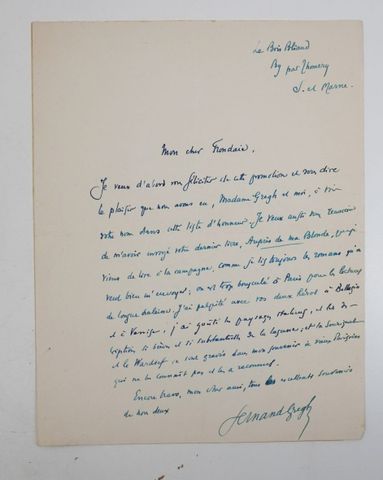 Le Bois Blaud
By par Thomery
S. et Marne.
Mon cher Frondaie,
Je veux d'abord vous féliciter de cette promotion et vous dire
le plaisir que nous avons eu, Madame Gregh et moi, à voir
votre nom dans cette liste d'honneur. Je veux aussi vous remercier
de m'avoir envoyé votre dernier livre, Auprès de ma Blonde, que j'ai
viens de lire à la campagne, comme je lis toujours les romans qu'on
veut bien m'envoyer, on est trop bousculé à Paris pour les lectures
de longue haleine. J'ai palpité avec vos deux héros à Bellagio
et à Varenna, j'ai goûté les paysages italiens, et la
description, si brève et si substantielle de la lagune, et la
et le
qui ne la connaît pas et l'a reconnue.
Encore bravo, mon cher ami, tous les excellents souvenirs
de nous deux
Fernand Gregh